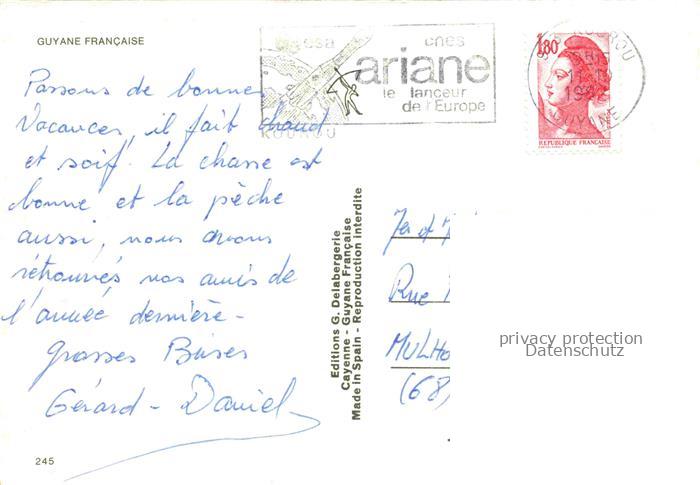 GUYANE FRANÇAISE
esa cnes
ariane
le lanceur
de l'Europe
KOUROU
1,80
KOUROU
11 H
GUYANE
REPUBLIQUE FRANÇAISE
Passons de bonnes
Vacances, il fait chaud
et soif. La chasse est
bonne et la pêche
aussi, nous avons
rétrouvés nos amis de
l'année dernière -
grosses Bises
Gérard - Daniel
245
Editions G. Delabergerie
Cayenne - Guyane Française
Made in Spain - Reproduction interdite
Rue
MULHO
(68)
privacy protection
Datenschutz